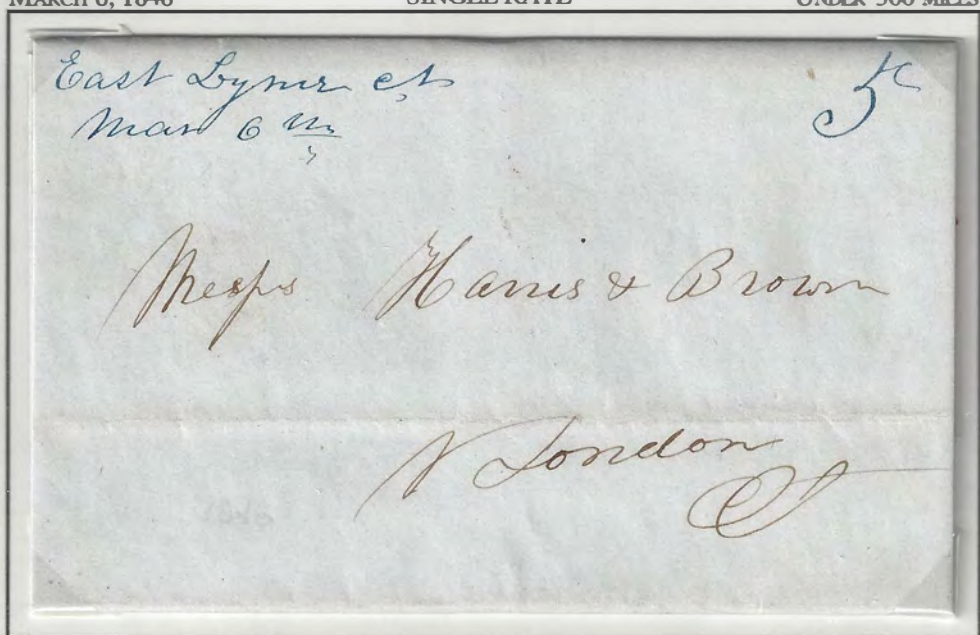 MARCH 6, 1846 SINGLE RATE UNDER 300 MILES
East Lyme Ct 5c
Mar 6th
Messs Harris & Brown
N London
Ct